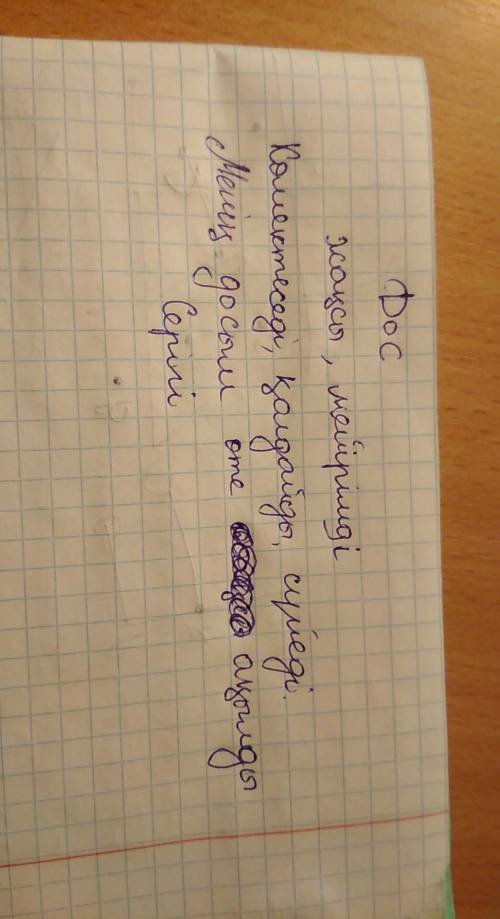 Дос
жақсы, мейірімді
Көмектеседі, қалдайды, сүйеді.
Менің досым өте ақылды
Серігі